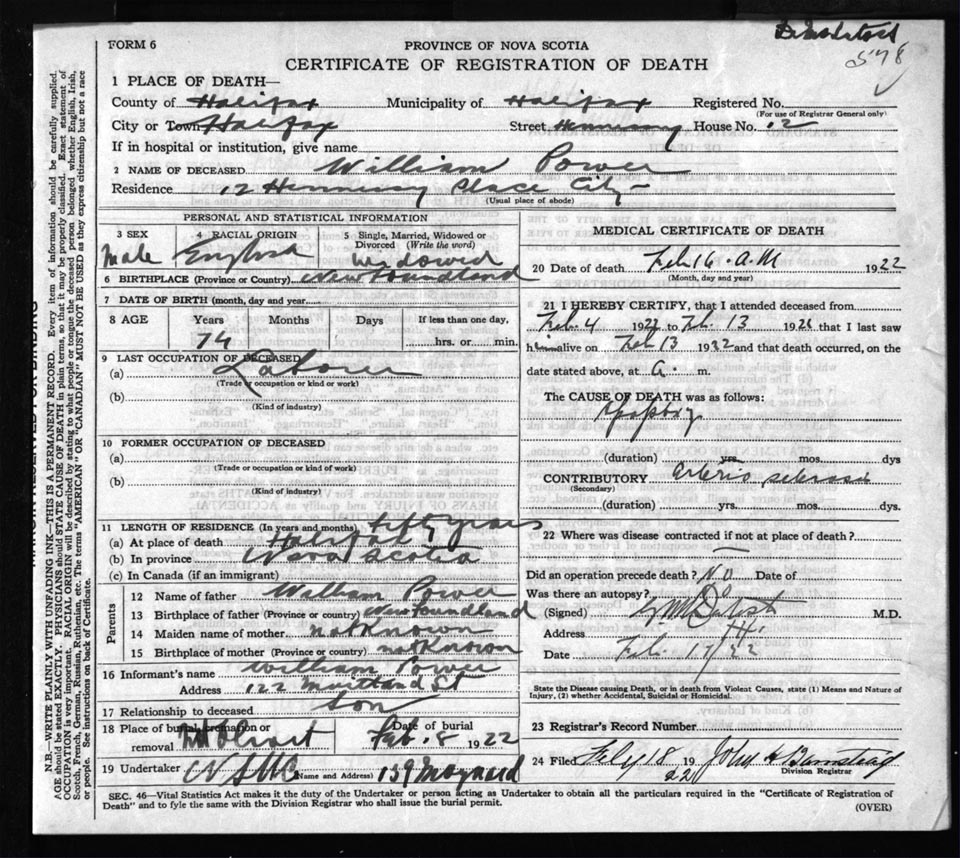 578
FORM 6
PROVINCE OF NOVA SCOTIA
CERTIFICATE OF REGISTRATION OF DEATH
1 PLACE OF DEATH—
County of Halifax Municipality of Halifax Registered No.
(For use of Registrar General only)
City or Town Halifax Street Hennessy House No. 12
If in hospital or institution, give name
2 NAME OF DECEASED William Power
Residence 12 Hennessy Place City
(Usual place of abode)
PERSONAL AND STATISTICAL INFORMATION
3 SEX 4 RACIAL ORIGIN 5 Single, Married, Widowed or Divorced (Write the word)
Male English Widowed
6 BIRTHPLACE (Province or Country) Newfoundland
7 DATE OF BIRTH (month, day and year)
8 AGE Years Months Days If less than one day,
74 hrs. or min.
9 LAST OCCUPATION OF DECEASED
(a) Laborer
(Trade or occupation or kind or work)
(b)
(Kind of industry)
10 FORMER OCCUPATION OF DECEASED
(a)
(Trade or occupation or kind of work)
(b)
(Kind of industry)
11 LENGTH OF RESIDENCE (In years and months) fifty years
(a) At place of death Halifax
(b) In province Nova Scotia
(c) In Canada (if an immigrant)
Parents
12 Name of father William Power
13 Birthplace of father (Province or country) Newfoundland
14 Maiden name of mother not Known
15 Birthplace of mother (Province or country) not Known
16 Informant's name William Power
Address 122 Maitland St
17 Relationship to deceased son
18 Place of burial, cremation or removal Date of burial
Feb. 8 1922
19 Undertaker (Name and Address) 139 Maynard
MEDICAL CERTIFICATE OF DEATH
20 Date of death Feb 16 . A.M 1922
(Month, day and year)
21 I HEREBY CERTIFY, that I attended deceased from
Feb. 4 1922 to Feb. 13 192 that I last saw
him alive on Feb 13 and that death occurred, on the
date stated above, at a. m.
The CAUSE OF DEATH was as follows:
(duration) yrs. mos. dys
CONTRIBUTORY Arterio sclerosis
(Secondary)
(duration) yrs. mos. dys.
22 Where was disease contracted if not at place of death?
Did an operation precede death? NO Date of
Was there an autopsy?
(Signed) M.D.
Address
Date Feb. 17/22
State the Disease causing Death, or in death from Violent Causes, state (1) Means and Nature of Injury, (2) whether Accidental, Suicidal or Homicidal.
23 Registrar's Record Number
24 Filed Feby 18 19 22 John A
Division Registrar
SEC. 46—Vital Statistics Act makes it the duty of the Undertaker or person acting as Undertaker to obtain all the particulars required in the "Certificate of Registration of
Death" and to fyle the same with the Division Registrar who shall issue the burial permit.
(OVER)
N.B.—WRITE PLAINLY WITH UNFADING INK—THIS IS A PERMANENT RECORD. Every item of information should be carefully supplied.
AGE should be stated EXACTLY. PHYSICIANS should STATE CAUSE OF DEATH in plain terms, so that it may be properly classified. Exact statement of
OCCUPATION is very important. RACIAL ORIGIN will be described by stating to what people or tongue the deceased person belonged whether English, Irish,
Scotch, French, German, Russian, Ruthenian, etc. The terms "AMERICAN" OR "CANADIAN" MUST NOT BE USED as they express citizenship but not a race
or people. See instructions on back of Certificate.